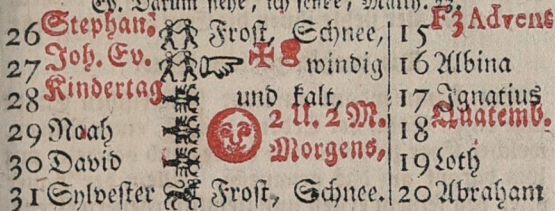 Ev. Darum siehe, ich sende, Matth. 23.
26 Stephan. Frost, Schnee, 15 F3 Advent
27 Joh. Ev. windig 16 Albina
28 Kindertag und kalt, 17 Ignatius
29 Noah 2 U. 2 M. 18 Quatemb.
30 David Morgens, 19 Loth
31 Sylvester Frost, Schnee. 20 Abraham